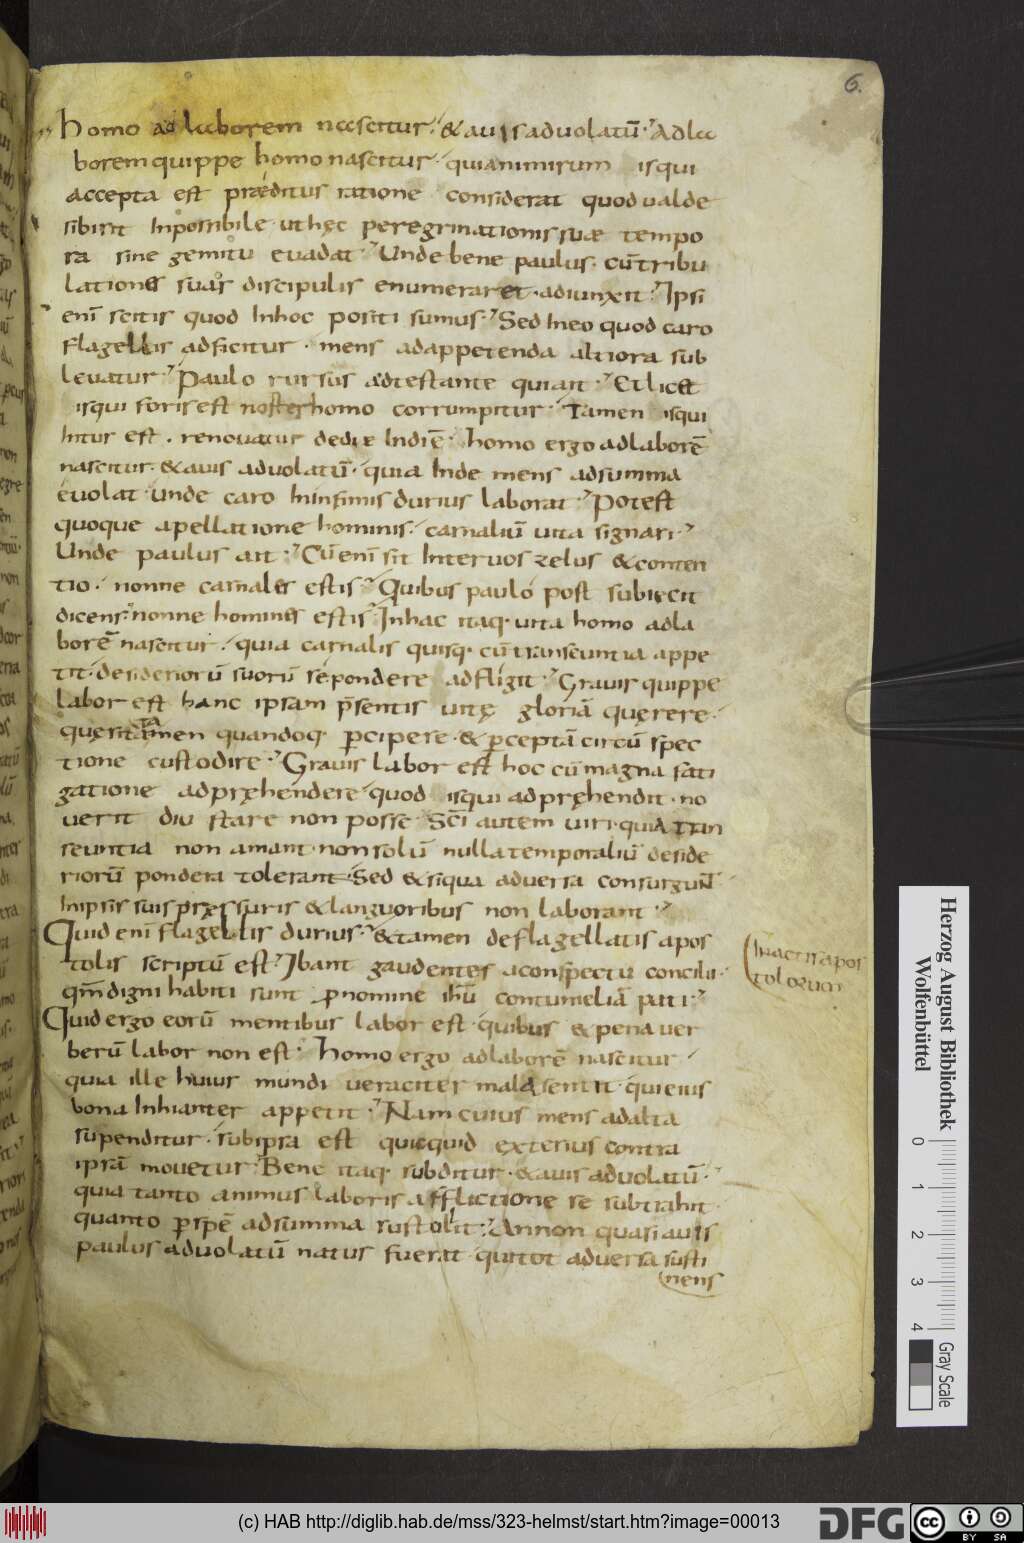 6.
homo ad laborem nascitur · & auis ad uolatū · Ad la
borem quippe homo nascitur · quia nimirum is qui
accepta est præditus ratione considerat quod ualde
sibi sit Inpossibile · ut hęc peregrinationis suæ tempo
ra sine gemitu euadat · Unde bene paulus · cū tribu
lationes suas discipulis enumeraret · adiunxit · Ipsi
enī scitis quod Inhoc positi sumus · Sed Ineo quod caro
flagellis adficitur · mens ad appetenda altiora sub
leuatur · Paulo rursus adtestante qui ait · Et licet
is qui foris est noster homo corrumpitur · Tamen is qui
Intus est · renouatur de die Indiē · homo ergo ad laborē
nascitur · & auis ad uolatū · quia Inde mens ad summa
euolat · unde caro In infimis durius laborat · Potest
quoque apellatione hominis · carnaliū uita signari ·
Unde paulus ait · Cū enī sit Inter uos zelus & conten
tio · nonne carnales estis · Quibus paulo post subiecit
dicens · nonne homines estis · In hac itaq · uita homo ad la
borē nascitur · quia carnalis quisq · cū transeuntia appe
tit · desideriorū suorū se pondere adfligit · Grauis quippe
labor est hanc ipsam p̄sentis uitę gloriā quęrere ·
quęsitam tamen quandoq · p̱cipere · & p̱ceptā circū spec
tione custodire · Grauis labor est hoc cū magna fati
gatione adpręhendere · quod is qui adpręhendit · no
uerit diu stare non posse · Sc̄i autem uiri · quia tran
seuntia non amant · non solū nulla temporaliū deside
riorū pondera tolerant · Sed & si qua aduersa consurgunt ·
In ipsis suis pręssuris & languoribus non laborant ·
Quid enī flagellis durius · & tamen de flagellatis apos
tolis scriptū est · Ibant gaudentes a conspectu concilii ·
qm̄ digni habiti sunt p̱ nomine ih̄u contumeliā pati ·
In actis apos
tolorum
Quid ergo eorū mentibus labor est · quibus & pena uer
berū labor non est · Homo ergo ad laborē nascitur ·
quia ille huius mundi ueraciter mala sentit · qui eius
bona Inhianter appetit · Nam cuius mens ad alta
suspenditur · sub ipsa est quicquid exterius contra
ipsā mouetur · Bene itaq · subditur · & auis ad uolatū ·
quia tanto animus laboris afflictione se subtrahit ·
quanto p̱ spē ad summa sustollit · An non quasi auis
paulus ad uolatū natus fuerat · qui tot aduersa susti
nens
Herzog August Bibliothek
Wolfenbüttel
0 1 2 3 4
Gray Scale
(c) HAB http://diglib.hab.de/mss/323-helmst/start.htm?image=00013
DFG
cc BY SA